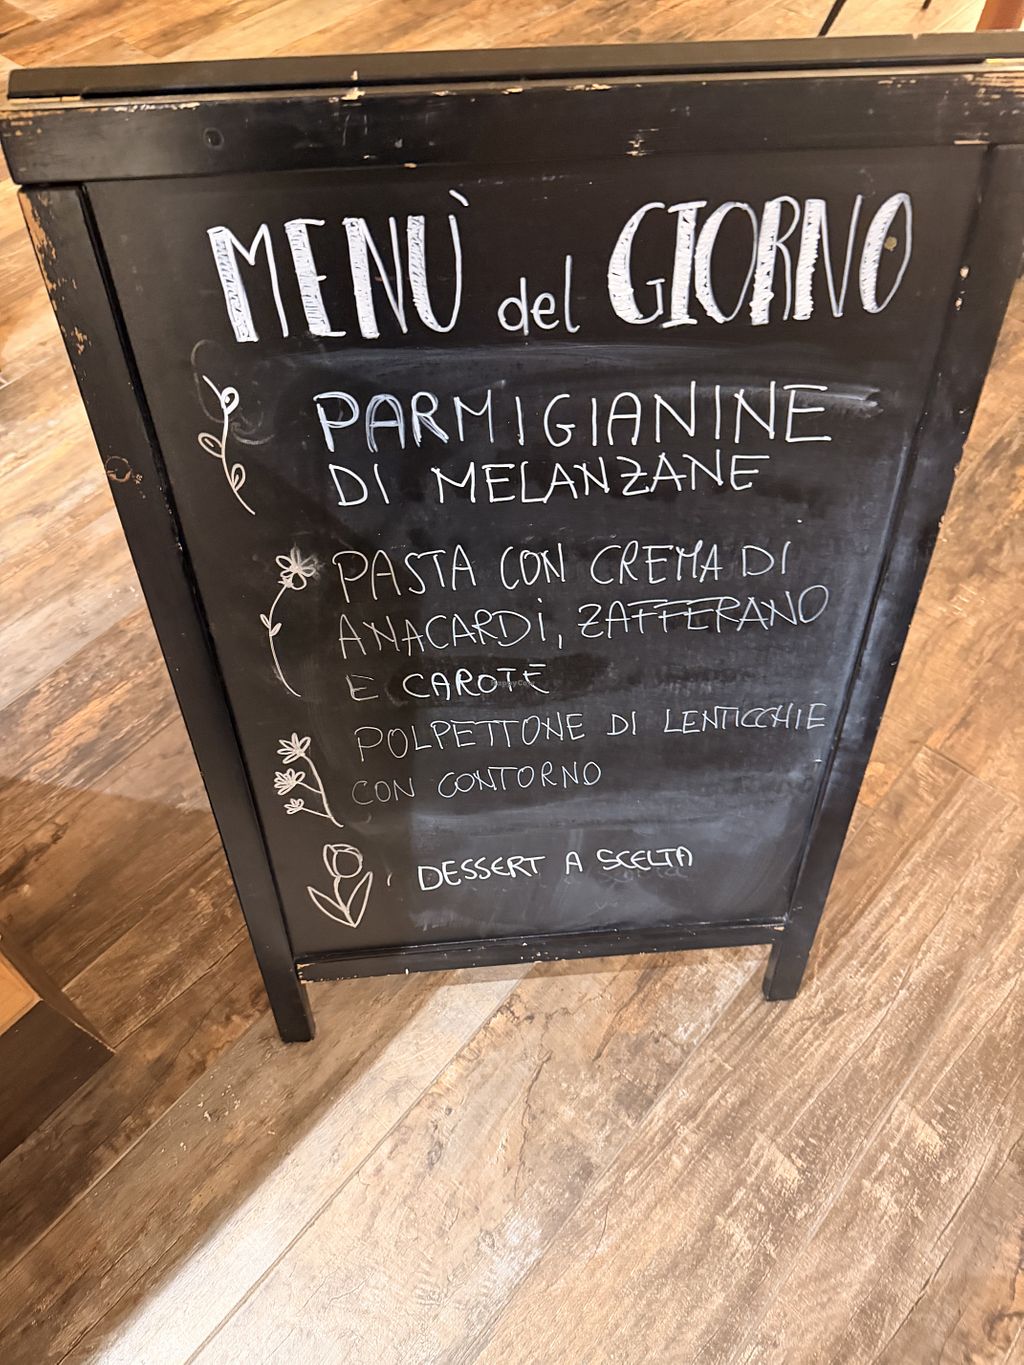 MENÙ del GIORNO
PARMIGIANINE
DI MELANZANE
PASTA CON CREMA DI
ANACARDI, ZAFFERANO
E CAROTE
HappyCow
POLPETTONE DI LENTICCHIE
CON CONTORNO
DESSERT A SCELTA